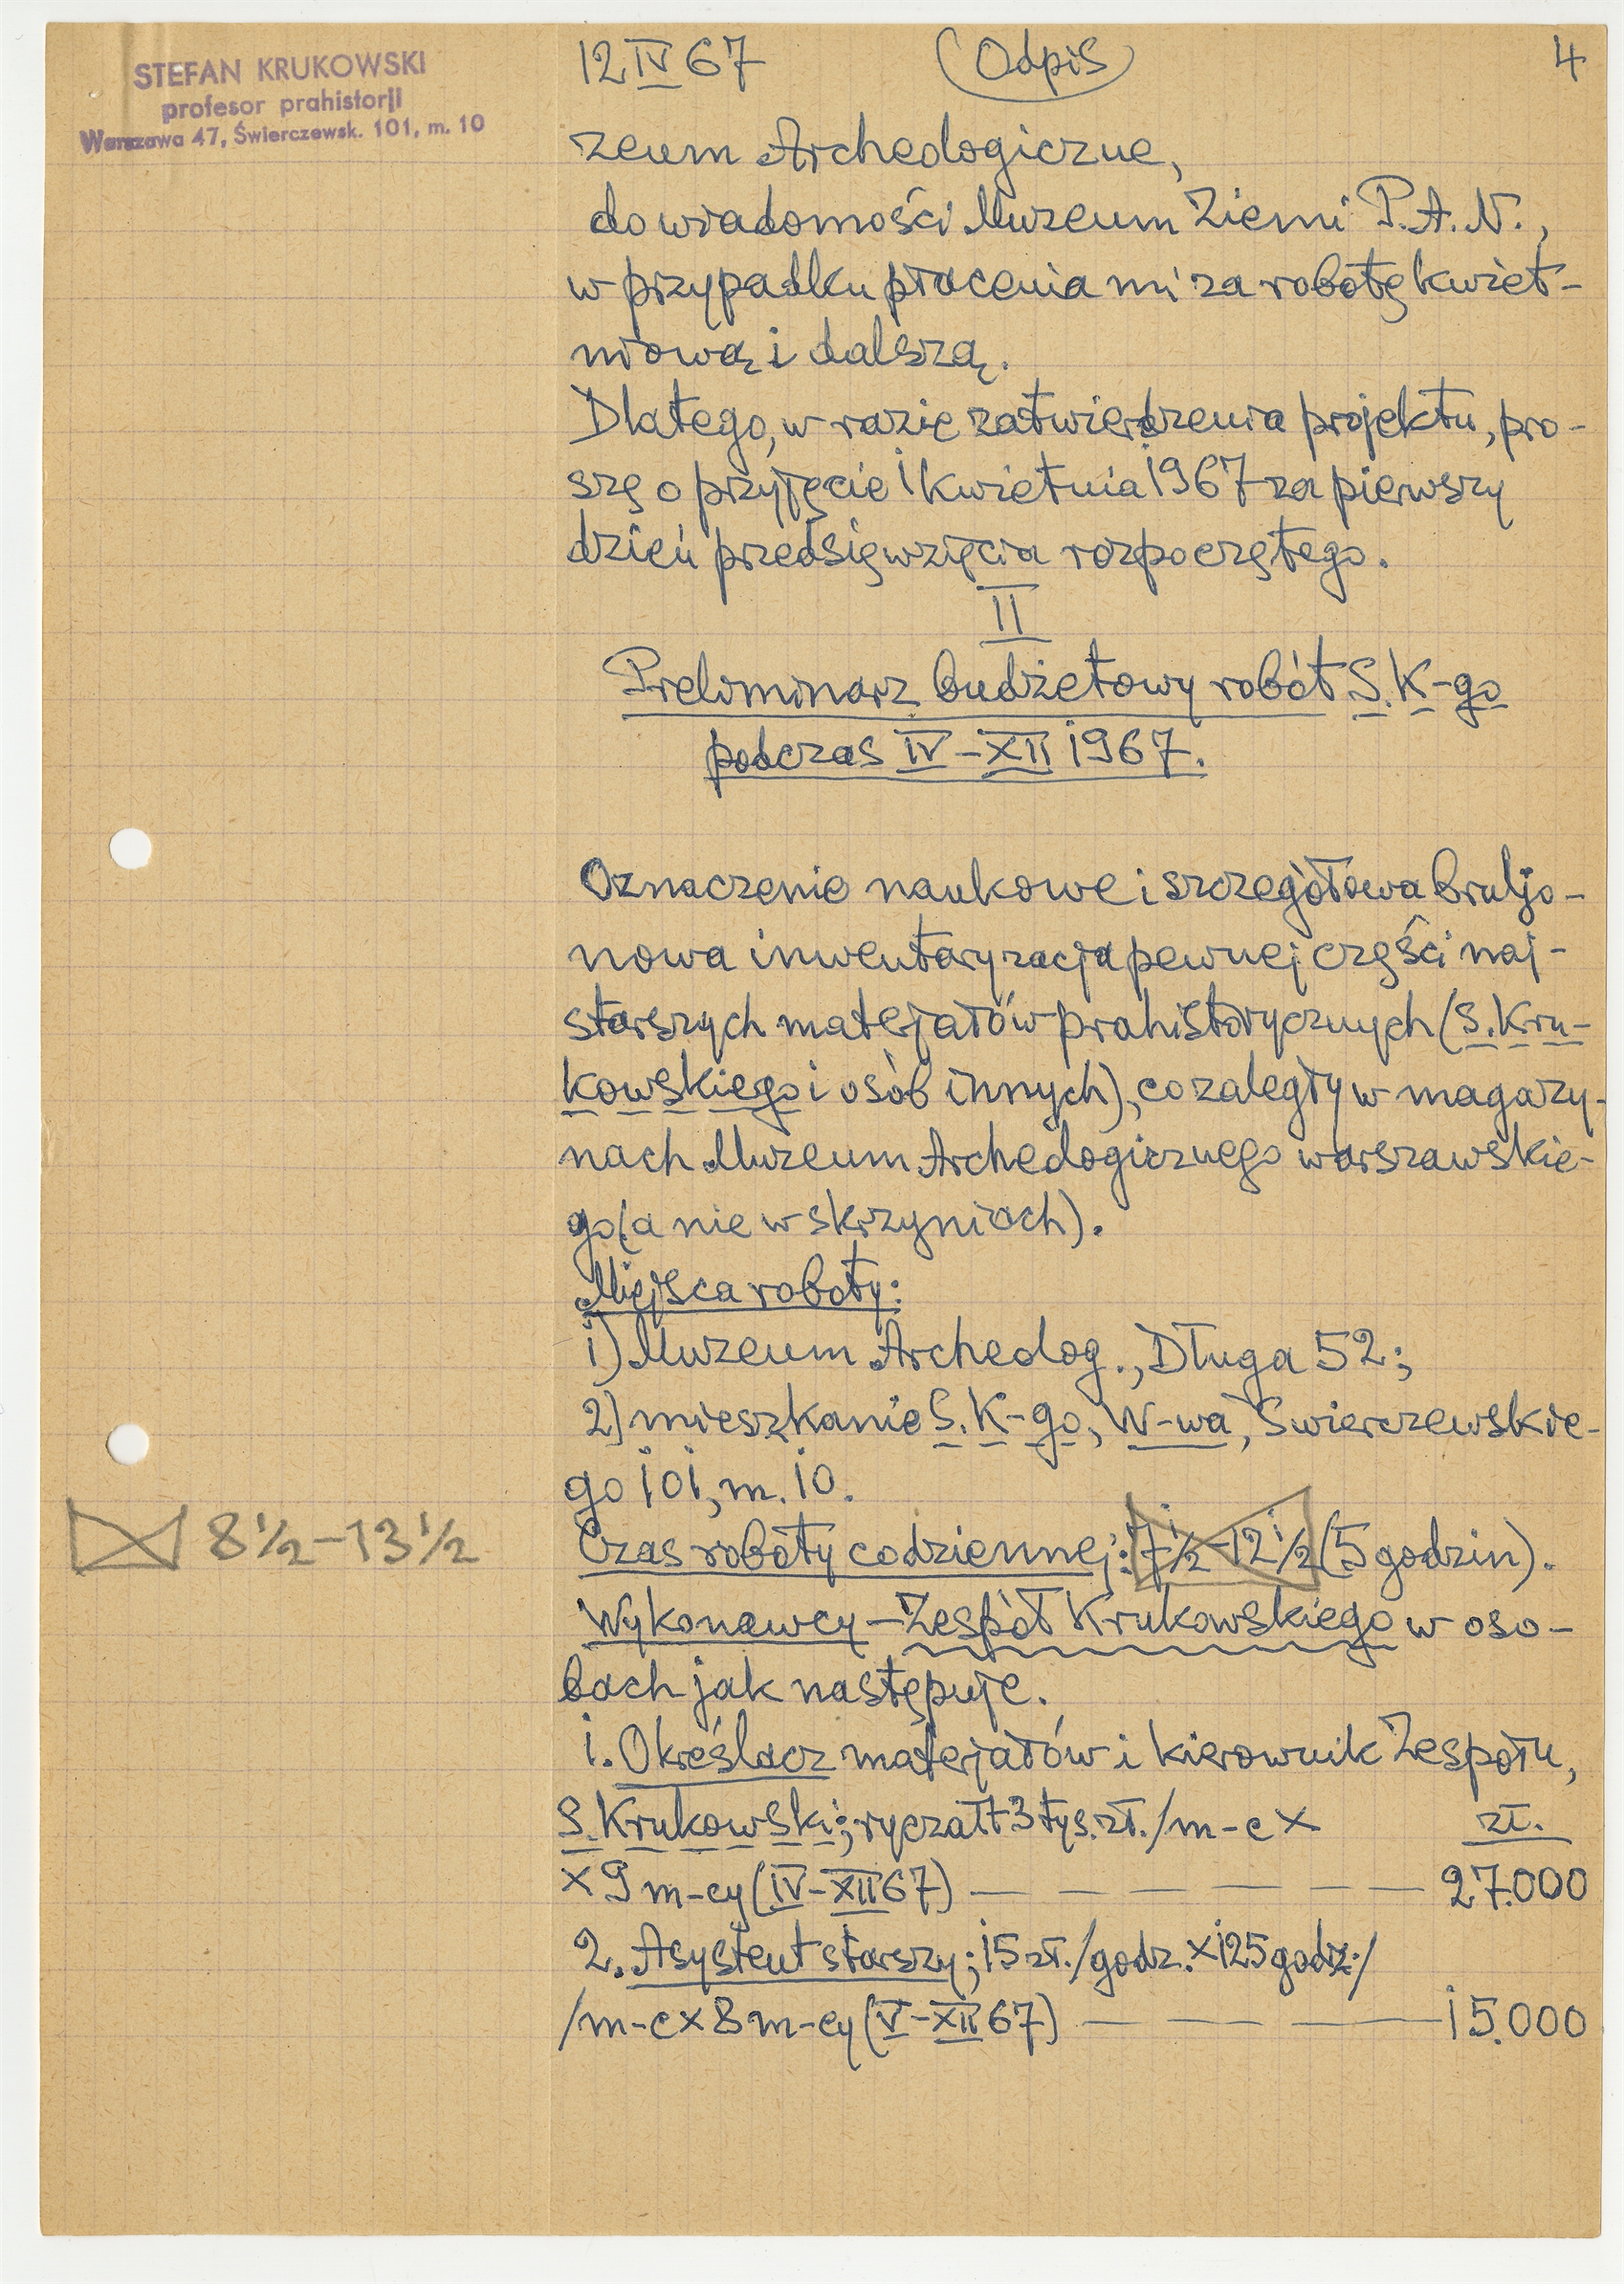 STEFAN KRUKOWSKI
profesor prahistorji
Warszawa 47, Świerczewsk. 101, m. 10
12 IV 67 (Odpis) 4
zeum Archeologiczne,
do wiadomości Muzeum Ziemi P.A.N.,
w przypadku płacenia mi za robotę kwiet-
niową i dalszą.
Dlatego, w razie zatwierdzenia projektu, pro-
szę o przyjęcie 1 kwietnia 1967 za pierwszy
dzień przedsięwzięcia rozpoczętego.
II
Preliminarz budżetowy robót S. K-go
podczas IV-XII 1967.
Oznaczenie naukowe i szczegółowa bruljo-
nowa inwentaryzacja pewnej części naj-
starszych materjałów prahistorycznych (S. Kru-
kowskiego i osób innych), co zaległy w magazy-
nach Muzeum Archeologicznego warszawskie-
go (a nie w skrzyniach).
Miejsca roboty:
1) Muzeum Archeolog., Długa 52;
2) mieszkanie S. K-go, W-wa, Świerczewskie-
go 101, m. 10.
8 1/2 - 13 1/2
Czas roboty codziennej: 7 1/2 - 12 1/2 (5 godzin).
Wykonawcy - Zespół Krukowskiego w oso-
bach jak następuje.
1. Określacz materjałów i kierownik Zespołu,
S. Krukowski; ryczałt 3 tys. zł. / m-c × zł.
× 9 m-cy (IV-XII 67) — — — — — — — 27.000
2. Asystent starszy; 15 zł. / godz. × 125 godz. /
/ m-c × 8 m-cy (V-XII 67) — — — — — 15.000